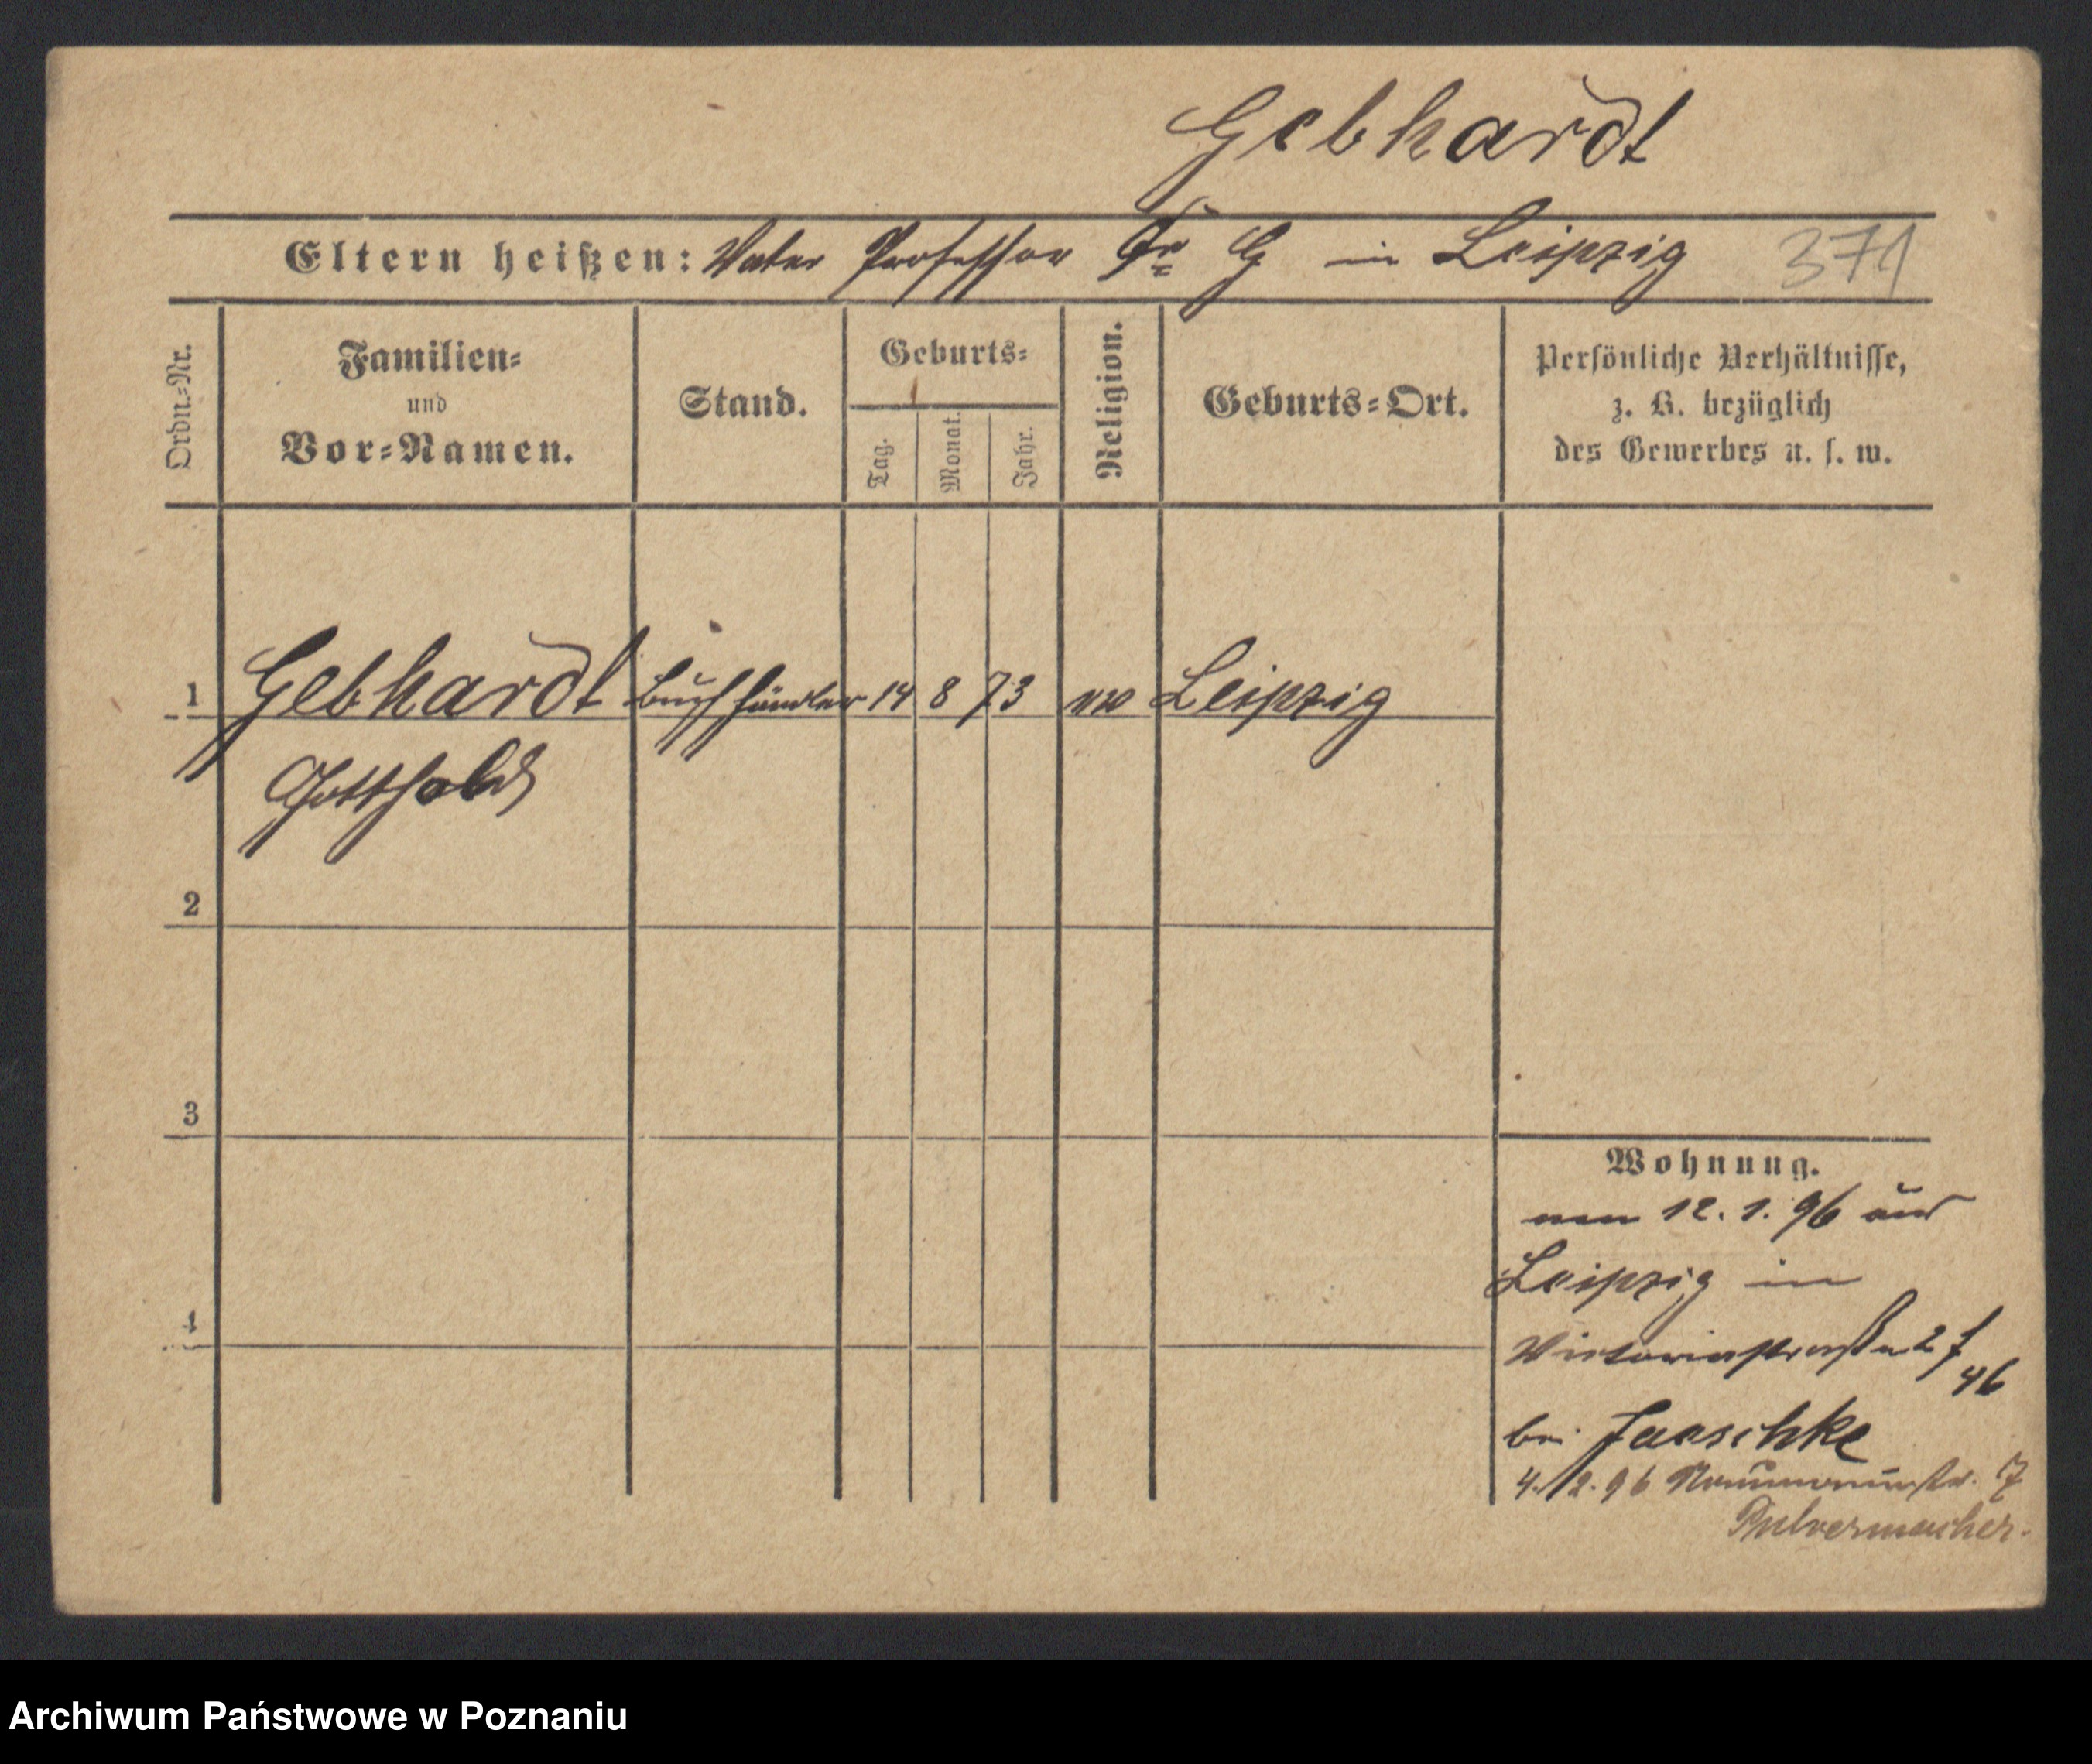 Gebhardt
Eltern heißen: Vater Professor Dr G in Leipzig 371
Ordn.=Nr.
Familien=
und
Vor=Namen.
Stand.
Geburts=
Tag.
Monat.
Jahr.
Religion.
Geburts=Ort.
Persönliche Verhältnisse,
z. B. bezüglich
des Gewerbes u. s. w.
1 Gebhardt Buchhändler 14 8 73 Leipzig
Gotthold
2
3
4
Wohnung.
12.1.96 aus
Leipzig in
Victoriastraße 2
bei Jaaschke
4./2.96 7
Pulvermacher.
Archiwum Państwowe w Poznaniu